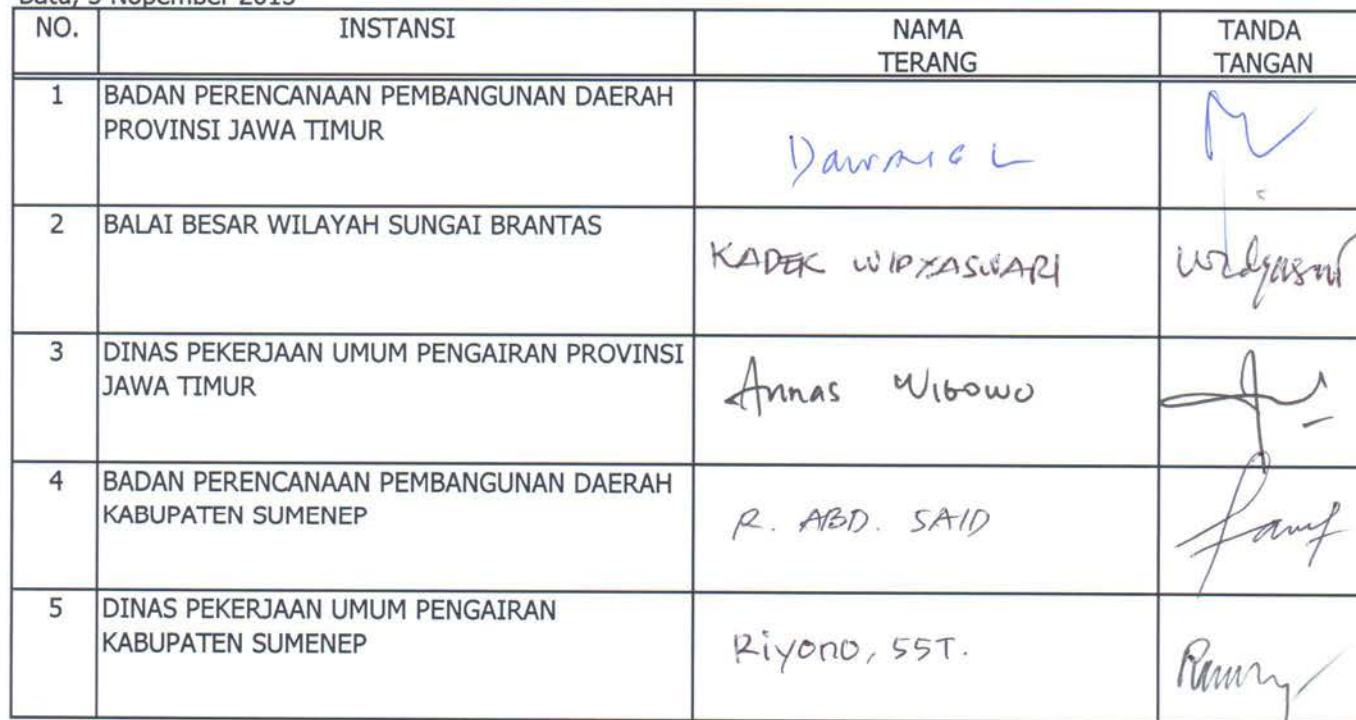 Batu, 5 Nopember 2015
NO. INSTANSI NAMA TERANG TANDA TANGAN
1 BADAN PERENCANAAN PEMBANGUNAN DAERAH
PROVINSI JAWA TIMUR
2 BALAI BESAR WILAYAH SUNGAI BRANTAS KADEK WIDYASWARI
3 DINAS PEKERJAAN UMUM PENGAIRAN PROVINSI
JAWA TIMUR Annas Wibowo
4 BADAN PERENCANAAN PEMBANGUNAN DAERAH
KABUPATEN SUMENEP R. ABD. SAID
5 DINAS PEKERJAAN UMUM PENGAIRAN
KABUPATEN SUMENEP Riyono, SST.